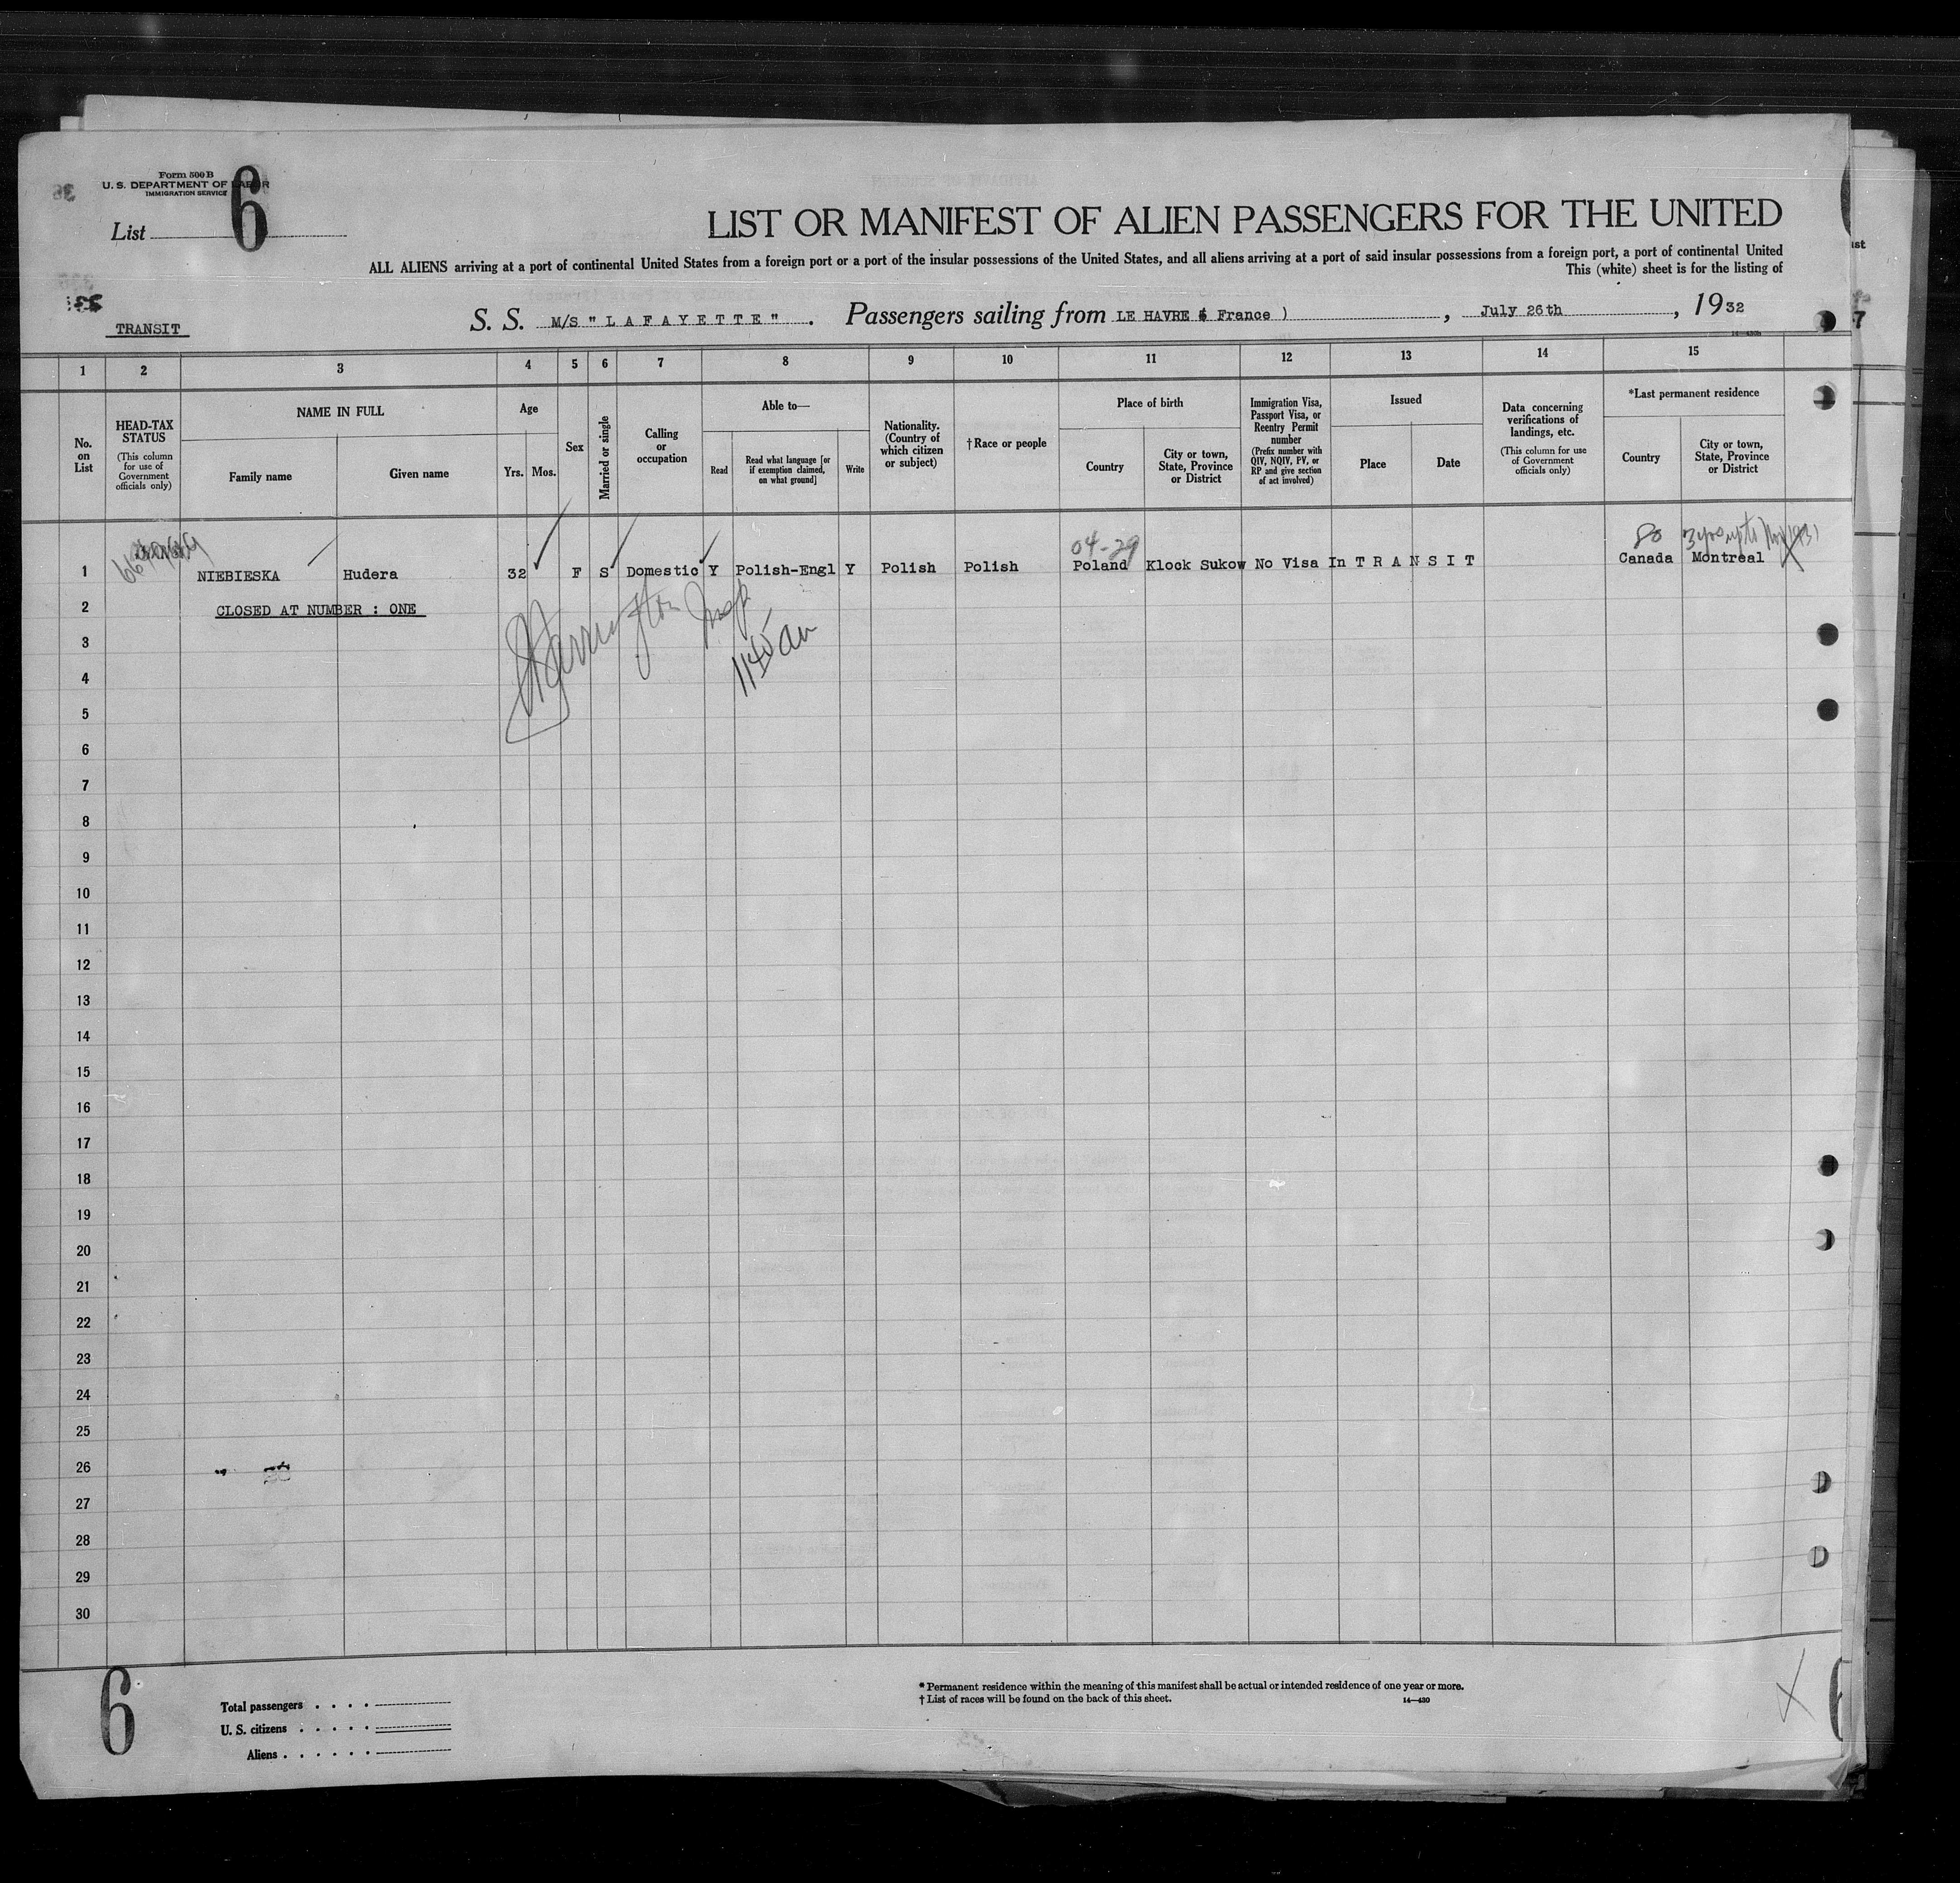 Form 500 B
U. S. DEPARTMENT OF LABOR
IMMIGRATION SERVICE
List 6
LIST OR MANIFEST OF ALIEN PASSENGERS FOR THE UNITED
ALL ALIENS arriving at a port of continental United States from a foreign port or a port of the insular possessions of the United States, and all aliens arriving at a port of said insular possessions from a foreign port, a port of continental United
This (white) sheet is for the listing of
TRANSIT
S. S. M/S " L A F A Y E T T E " . Passengers sailing from LE HAVRE ( France ) , July 26th , 1932
1 2 3 4 5 6 7 8 9 10 11 12 13 14 15
No. on List
HEAD-TAX STATUS
(This column for use of Government officials only)
NAME IN FULL
Family name
Given name
Age
Yrs. Mos.
Sex
Married or single
Calling or occupation
Able to—
Read
Read what language [or if exemption claimed, on what ground]
Write
Nationality. (Country of which citizen or subject)
†Race or people
Place of birth
Country
City or town, State, Province or District
Immigration Visa, Passport Visa, or Reentry Permit number
(Prefix number with QIV, NQIV, PV, or RP and give section of act involved)
Issued
Place
Date
Data concerning verifications of landings, etc.
(This column for use of Government officials only)
*Last permanent residence
Country
City or town, State, Province or District
04-29
80
1 NIEBIESKA Hudera 32 F S Domestic Y Polish-Engl Y Polish Polish Poland Klock Sukow No Visa In T R A N S I T Canada Montreal
2 CLOSED AT NUMBER : ONE
Insp
1140 am
3
4
5
6
7
8
9
10
11
12
13
14
15
16
17
18
19
20
21
22
23
24
25
26
27
28
29
30
6
Total passengers . . . .
U. S. citizens . . . . .
Aliens . . . . . .
* Permanent residence within the meaning of this manifest shall be actual or intended residence of one year or more.
† List of races will be found on the back of this sheet.
14—430